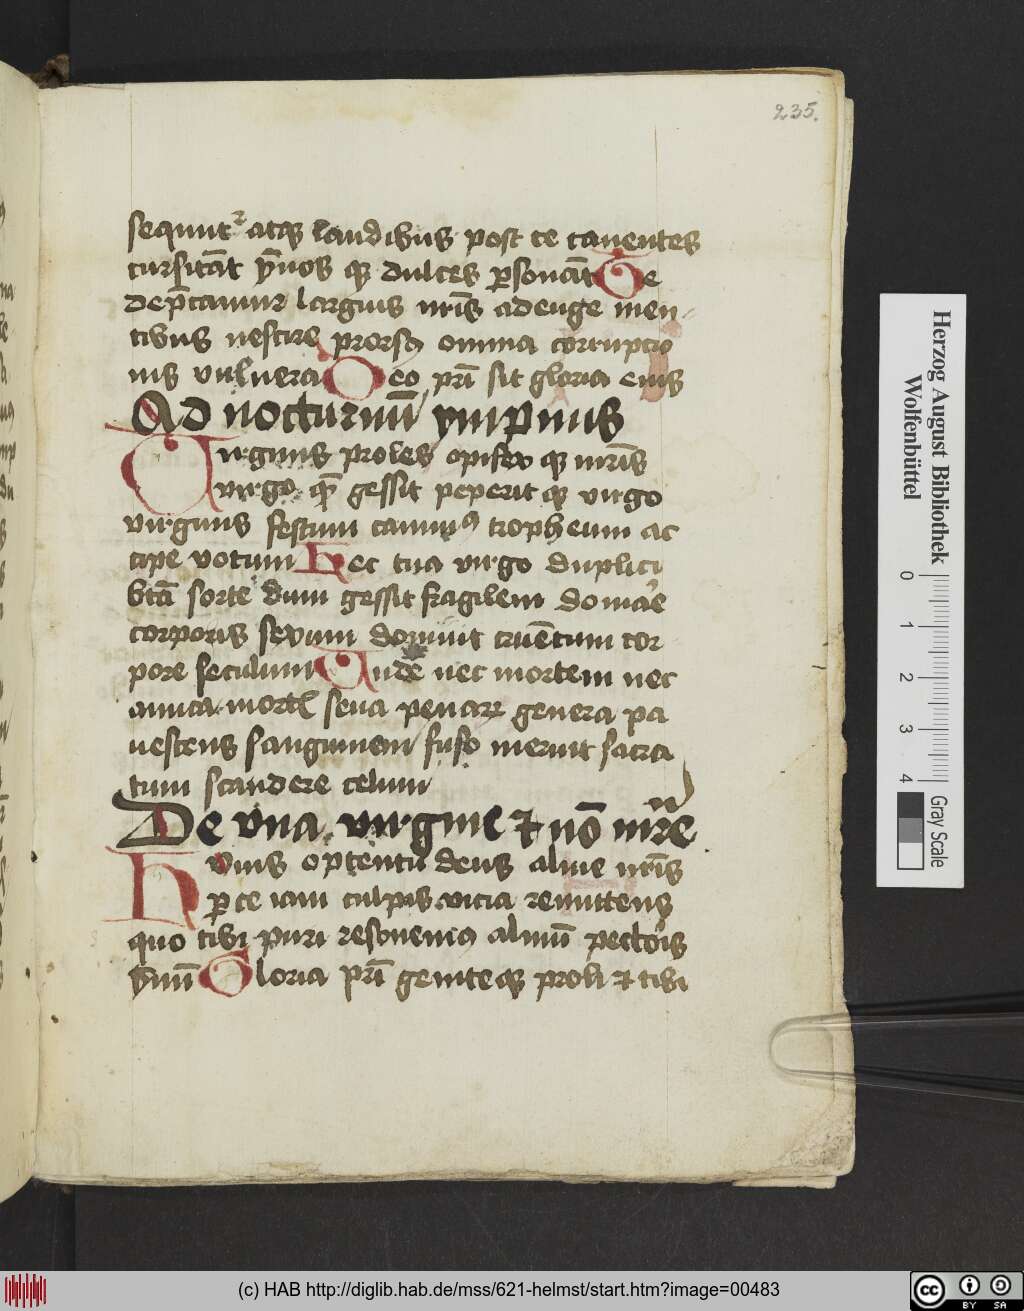 235.
sequunt᷑ atqꝫ laudibus post te canentes
cursitāt ymnos qꝫ dulces ꝑsonāt Te
dep̄camur largius nr̄is adauge men
tibus nescire prorsꝰ omnia corruptio
nis vulnera Deo pr̄i sit gloria eius
Ad nocturnū ympnus
Virginis proles opifex qꝫ mr̄is
virgo quē gessit peperit qꝫ virgo
virginis festum canimꝰ tropheum ac
cipe votum Hec tua virgo duplici
btā sorte dum gessit fragilem domāe
corporis sexum domuit cruētum cor
pore seculum Unde nec mortem nec
amica mortꝭ seua penarum genera pa
uescens sanguinem fuso meruit sacra
tum scandere celum
De vna virgine ⁊ nō mr̄e
Huius optentu deus alme nr̄is
ꝑce iam culpis vicia remittens
quo tibi puri resonemꝰ almū pectoris
ymnū Gloria pr̄i geniteqꝫ proli ⁊ tibi
Herzog August Bibliothek
Wolfenbüttel
0 1 2 3 4
Gray Scale
(c) HAB http://diglib.hab.de/mss/621-helmst/start.htm?image=00483
cc BY SA